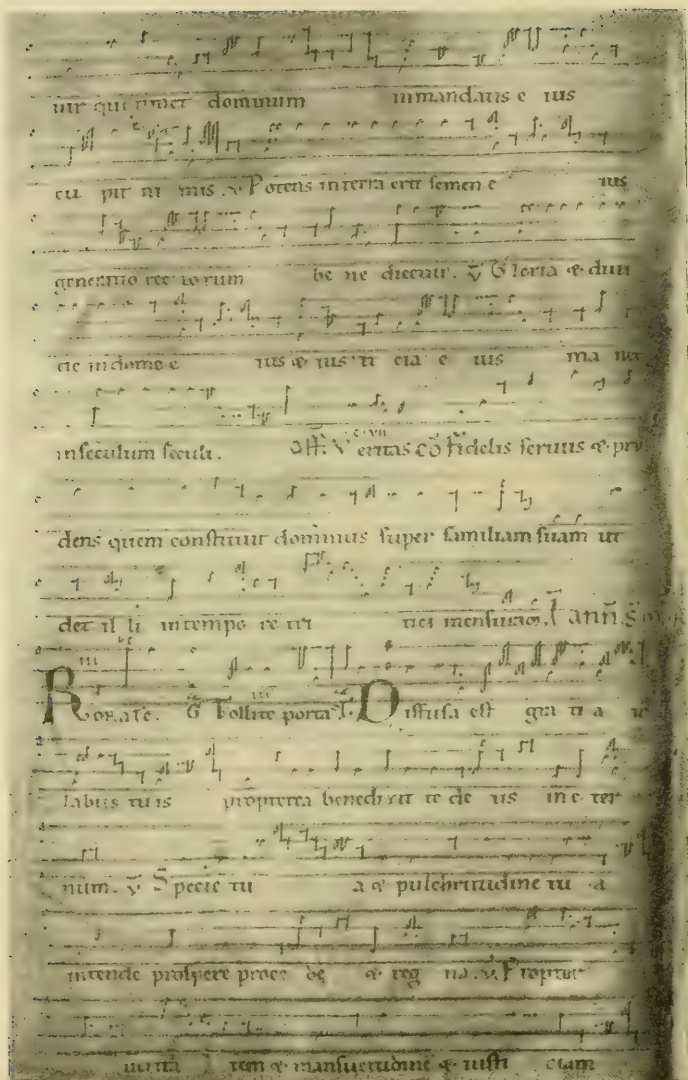 uir qui timet dominum inmandatis e ius
cu pit ni mis. v. Potens interra erit semen e ius
generatio rec to rum be ne dicetur. v Gloria & diui
tie indomo e ius & ius ti cia e ius ma net
insęculum sęculi. Off. Veritas cō Fidelis seruus & pru
dens quem constituit dominus super familiam suam ut
det il li intempo re tri tici mensuram.
Rorate. G Tollite porta Diffusa est gra ti a
labiis tuis propterea benedixit te de us in e ter
num. v Specie tu a & pulchritudine tu a
intende prospere proce de & reg na. v. Propter
uerita tem & mansuetudinē & iusti ciam